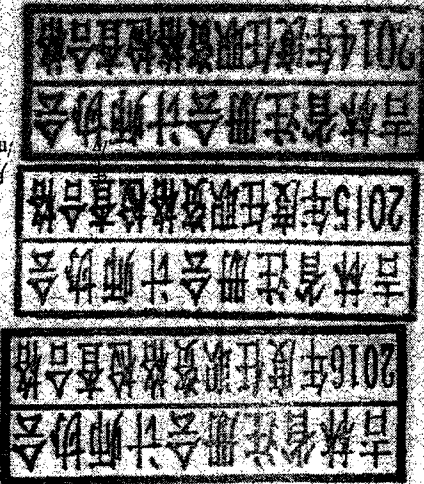 吉林省注册会计师协会
2016年度任职资格检查合格
吉林省注册会计师协会
2015年度任职资格检查合格
吉林省注册会计师协会
2014年度任职资格检查合格